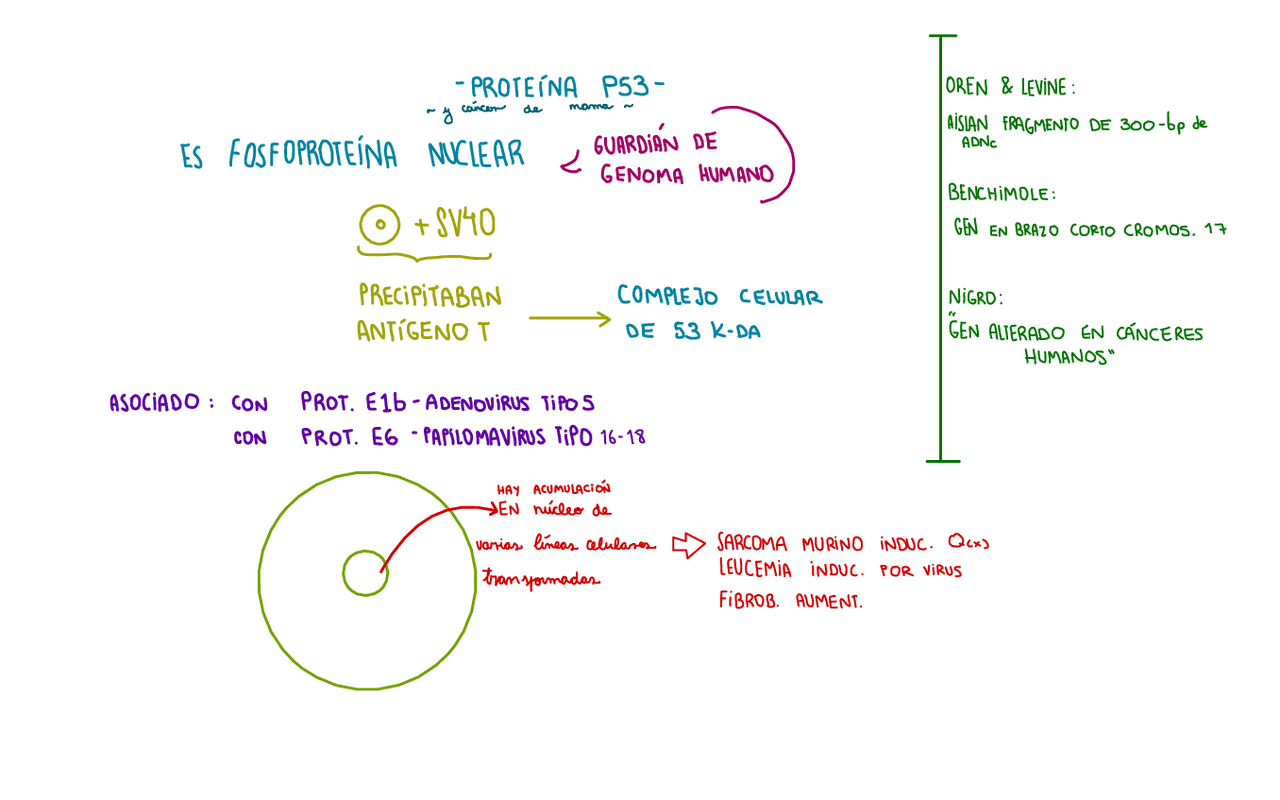 -PROTEÍNA P53-
~ y cáncer de mama ~
ES FOSFOPROTEÍNA NUCLEAR
GUARDIÁN DE
GENOMA HUMANO
+ SV40
PRECIPITABAN
ANTÍGENO T
COMPLEJO CELULAR
DE 53 K-DA
ASOCIADO: CON PROT. E1b - ADENOVIRUS TIPO 5
CON PROT. E6 - PAPILOMAVIRUS TIPO 16-18
HAY ACUMULACIÓN
EN núcleo de
varias líneas celulares
transformadas
SARCOMA MURINO INDUC. Q(x)
LEUCEMIA INDUC. POR VIRUS
FIBROB. AUMENT.
OREN & LEVINE:
AISLAN FRAGMENTO DE 300-bp de
ADNc
BENCHIMOLE:
GEN EN BRAZO CORTO CROMOS. 17
NIGRO:
"GEN ALTERADO EN CÁNCERES
HUMANOS"